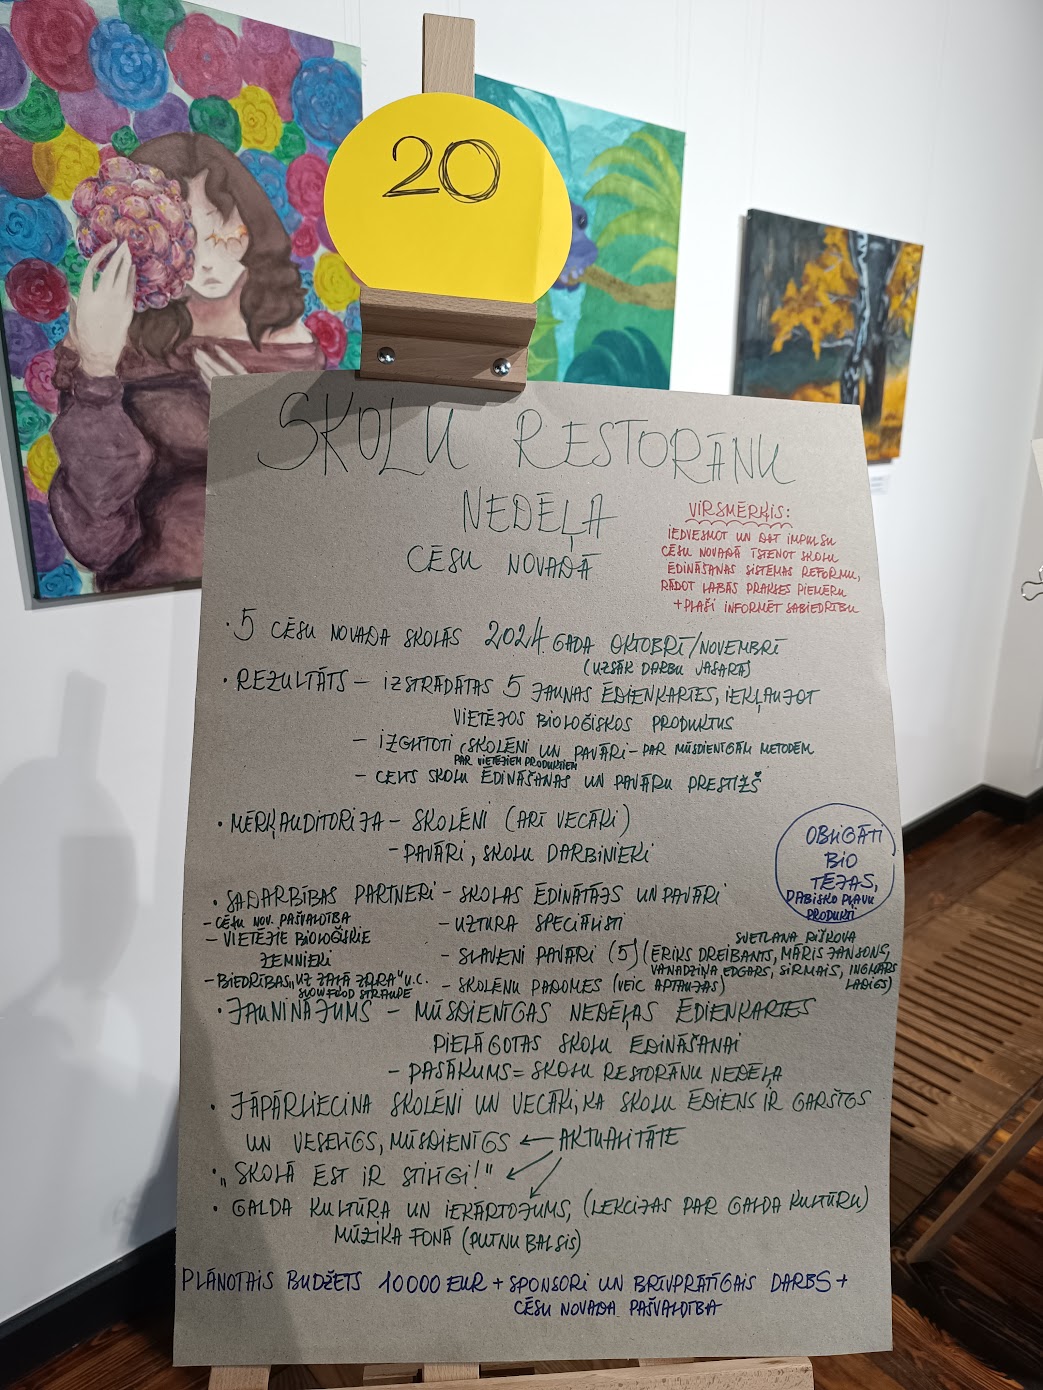 20
SKOLU RESTORĀNU
NEDĒĻA
CĒSU NOVADĀ
VIRSMĒRĶIS:
IEDVESMOT UN DOT IMPULSU
CĒSU NOVADĀ ĪSTENOT SKOLU
ĒDINĀŠANAS SISTĒMAS REFORMU,
RĀDOT LABĀS PRAKSES PIEMĒRU
+ PLAŠI INFORMĒT SABIEDRĪBU
· 5 CĒSU NOVADA SKOLĀS 2024. GADA OKTOBRĪ/NOVEMBRĪ
(UZSĀK DARBU VASARĀ)
· REZULTĀTS – IZSTRĀDĀTAS 5 JAUNAS ĒDIENKARTES, IEKĻAUJOT
VIETĒJOS BIOLOĢISKOS PRODUKTUS
– IZGLĪTOTI SKOLĒNI UN PAVĀRI – PAR MŪSDIENĪGĀM METODĒM
PAR VIETĒJIEM PRODUKTIEM
– CELTS SKOLU ĒDINĀŠANAS UN PAVĀRU PRESTIŽS
· MĒRĶAUDITORIJA – SKOLĒNI (ARĪ VECĀKI)
– PAVĀRI, SKOLU DARBINIEKI
OBLIGĀTI
BIO
TĒJAS,
DABISKO PĻAVU
PRODUKTI
· SADARBĪBAS PARTNERI – SKOLAS ĒDINĀTĀJS UN PAVĀRI
– CĒSU NOV. PAŠVALDĪBA
– UZTURA SPECIĀLISTI
– VIETĒJIE BIOLOĢISKIE
ZEMNIEKI
SVETLANA RIŠKOVA
– SLAVENI PAVĀRI (5) (ĒRIKS DREIBANTS, MĀRIS JANSONS,
VANADZIŅA, EDGARS, SIRMAIS, INGMĀRS
LADIGS)
– BIEDRĪBAS „UZ ZAĻĀ ZARA" U.C.
SLOW FOOD STRAUPE
– SKOLĒNU PADOMES (VEIC APTAUJAS)
· JAUNINĀJUMS – MŪSDIENĪGAS NEDĒĻAS ĒDIENKARTES
PIELĀGOTAS SKOLU ĒDINĀŠANAI
– PASĀKUMS = SKOLU RESTORĀNU NEDĒĻA
· JĀPĀRLIECINA SKOLĒNI UN VECĀKI, KA SKOLU ĒDIENS IR GARŠĪGS
UN VESELĪGS, MŪSDIENĪGS ← AKTUALITĀTE
· „SKOLĀ ĒST IR STILĪGI!"
· GALDA KULTŪRA UN IEKĀRTOJUMS, (LEKCIJAS PAR GALDA KULTŪRU)
MŪZIKA FONĀ (PUTNU BALSIS)
PLĀNOTAIS BUDŽETS 10000 EUR + SPONSORI UN BRĪVPRĀTĪGAIS DARBS +
CĒSU NOVADA PAŠVALDĪBA